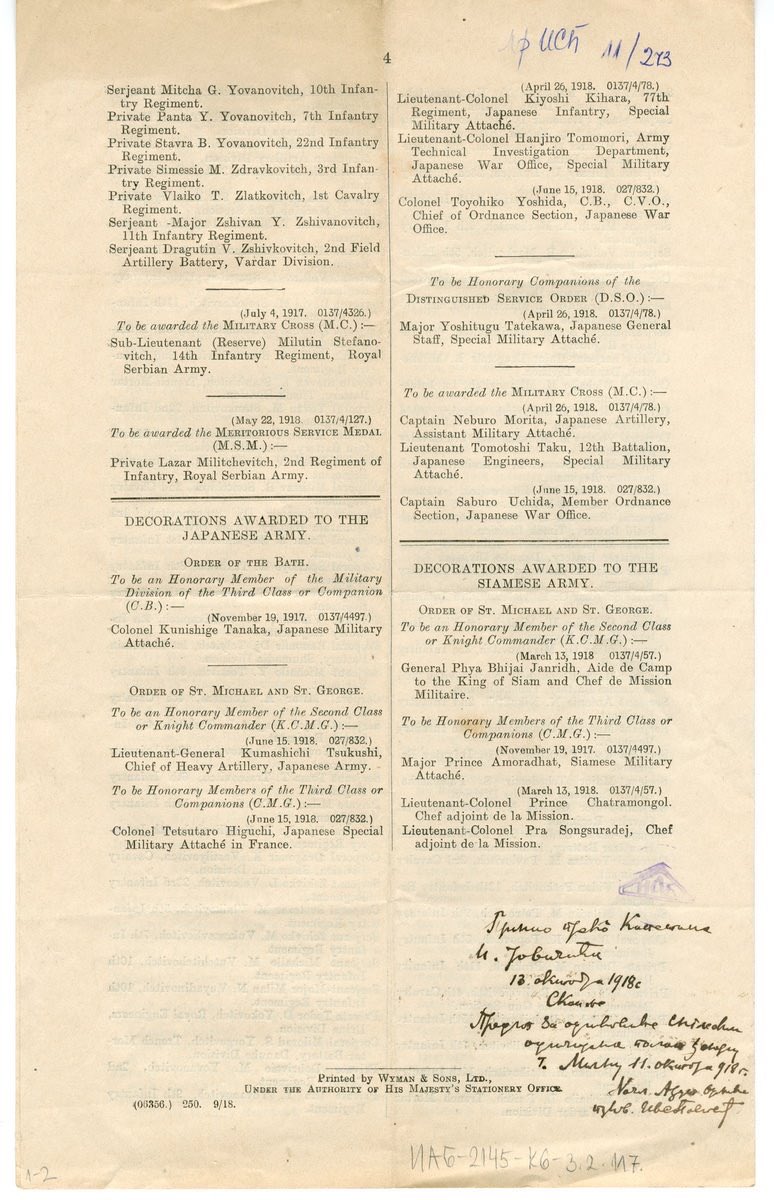 4
11/273
Serjeant Mitcha G. Yovanovitch, 10th Infan-
try Regiment.
Private Panta Y. Yovanovitch, 7th Infantry
Regiment.
Private Stavra B. Yovanovitch, 22nd Infantry
Regiment.
Private Simessie M. Zdravkovitch, 3rd Infan-
try Regiment.
Private Vlaiko T. Zlatkovitch, 1st Cavalry
Regiment.
Serjeant -Major Zshivan Y. Zshivanovitch,
11th Infantry Regiment.
Serjeant Dragutin V. Zshivkovitch, 2nd Field
Artillery Battery, Vardar Division.
(July 4, 1917. 0137/4326.)
To be awarded the MILITARY CROSS (M.C.) :—
Sub-Lieutenant (Reserve) Milutin Stefano-
vitch, 14th Infantry Regiment, Royal
Serbian Army.
(May 22, 1918. 0137/4/127.)
To be awarded the MERITORIOUS SERVICE MEDAL
(M.S.M.) :—
Private Lazar Militchevitch, 2nd Regiment of
Infantry, Royal Serbian Army.
DECORATIONS AWARDED TO THE
JAPANESE ARMY.
ORDER OF THE BATH.
To be an Honorary Member of the Military
Division of the Third Class or Companion
(C.B.) :—
(November 19, 1917. 0137/4497.)
Colonel Kunishige Tanaka, Japanese Military
Attaché.
ORDER OF ST. MICHAEL AND ST. GEORGE.
To be an Honorary Member of the Second Class
or Knight Commander (K.C.M.G.) :—
(June 15. 1918. 027/832.)
Lieutenant-General Kumashichi Tsukushi,
Chief of Heavy Artillery, Japanese Army.
To be Honorary Members of the Third Class or
Companions (C.M.G.) :—
(June 15, 1918. 027/832.)
Colonel Tetsutaro Higuchi, Japanese Special
Military Attaché in France.
(April 26, 1918. 0137/4/78.)
Lieutenant-Colonel Kiyoshi Kihara, 77th
Regiment, Japanese Infantry, Special
Military Attaché.
Lieutenant-Colonel Hanjiro Tomomori, Army
Technical Investigation Department,
Japanese War Office, Special Military
Attaché.
(June 15, 1918. 027/832.)
Colonel Toyohiko Yoshida, C.B., C.V.O.,
Chief of Ordnance Section, Japanese War
Office.
To be Honorary Companions of the
DISTINGUISHED SERVICE ORDER (D.S.O.) :—
(April 26, 1918. 0137/4/78.)
Major Yoshitugu Tatekawa, Japanese General
Staff, Special Military Attaché.
To be awarded the MILITARY CROSS (M.C.) :—
(April 26, 1918. 0137/4/78.)
Captain Neburo Morita, Japanese Artillery,
Assistant Military Attaché.
Lieutenant Tomotoshi Taku, 12th Battalion,
Japanese Engineers, Special Military
Attaché.
(June 15, 1918. 027/832.)
Captain Saburo Uchida, Member Ordnance
Section, Japanese War Office.
DECORATIONS AWARDED TO THE
SIAMESE ARMY.
ORDER OF ST. MICHAEL AND ST. GEORGE.
To be an Honorary Member of the Second Class
or Knight Commander (K.C.M.G.) :—
(March 13, 1918 0137/4/57.)
General Phya Bhijai Janridh, Aide de Camp
to the King of Siam and Chef de Mission
Militaire.
To be Honorary Members of the Third Class or
Companions (C.M.G.) :—
(November 19, 1917. 0137/4497.)
Major Prince Amoradhat, Siamese Military
Attaché.
(March 13, 1918. 0137/4/57.)
Lieutenant-Colonel Prince Chatramongol.
Chef adjoint de la Mission.
Lieutenant-Colonel Pra Songsuradej, Chef
adjoint de la Mission.
13. октобра 1918
11. октобра 918 г.
Printed by WYMAN & SONS, LTD.,
UNDER THE AUTHORITY OF HIS MAJESTY'S STATIONERY OFFICE.
(06356.) 250. 9/18.
1-2
ИАБ-2145-К6-3.2.117.